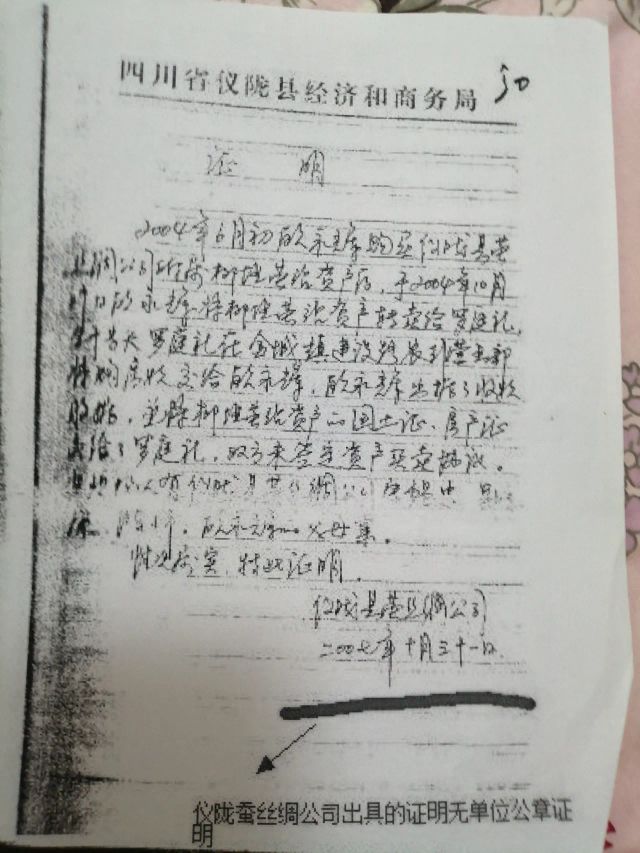 四川省仪陇县经济和商务局
30
证 明
2004年6月初欧永峰购买仪陇县蚕
丝绸公司所属柳垭茧站资产后，于2004年10月
日欧永 将柳垭茧站资产转卖给罗庭礼，
当天罗庭礼在金城镇建设路农行营业部
将购房款交给欧永 ，欧永 出据了收款
收据，并将柳垭茧站资产的国土证、房产证
交给了罗庭礼，双方未签定资产买卖协议。
仪陇县 丝绸公司
欧永 父母 。
情况属实，特此证明。
仪陇县蚕丝绸公司
二00七年十月三十一日
仪陇蚕丝绸公司出具的证明无单位公章证
明